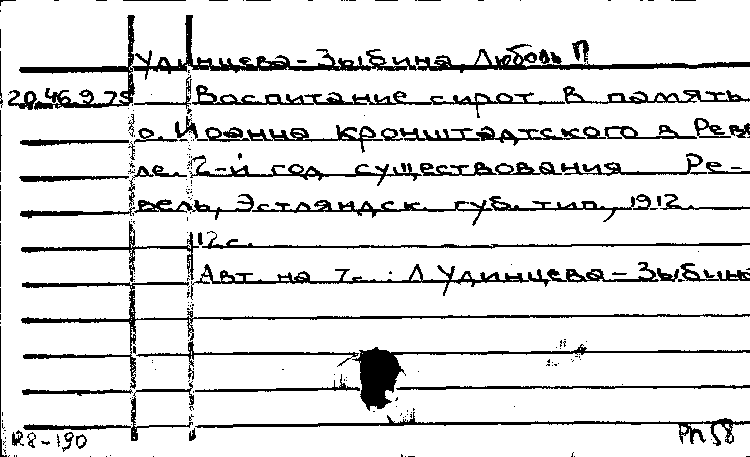 Удинцева-Зыбина, Любовь П
20.46.9.75 Воспитание сирот в память
о. Иоанна Кронштадтского в Реве
ле. 2-й год существования Ре-
вель, Эстляндск. губ. тип., 1912.
12 с.
Авт. на 7 с.: Л. Удинцева-Зыбина
R8-190
РП 58